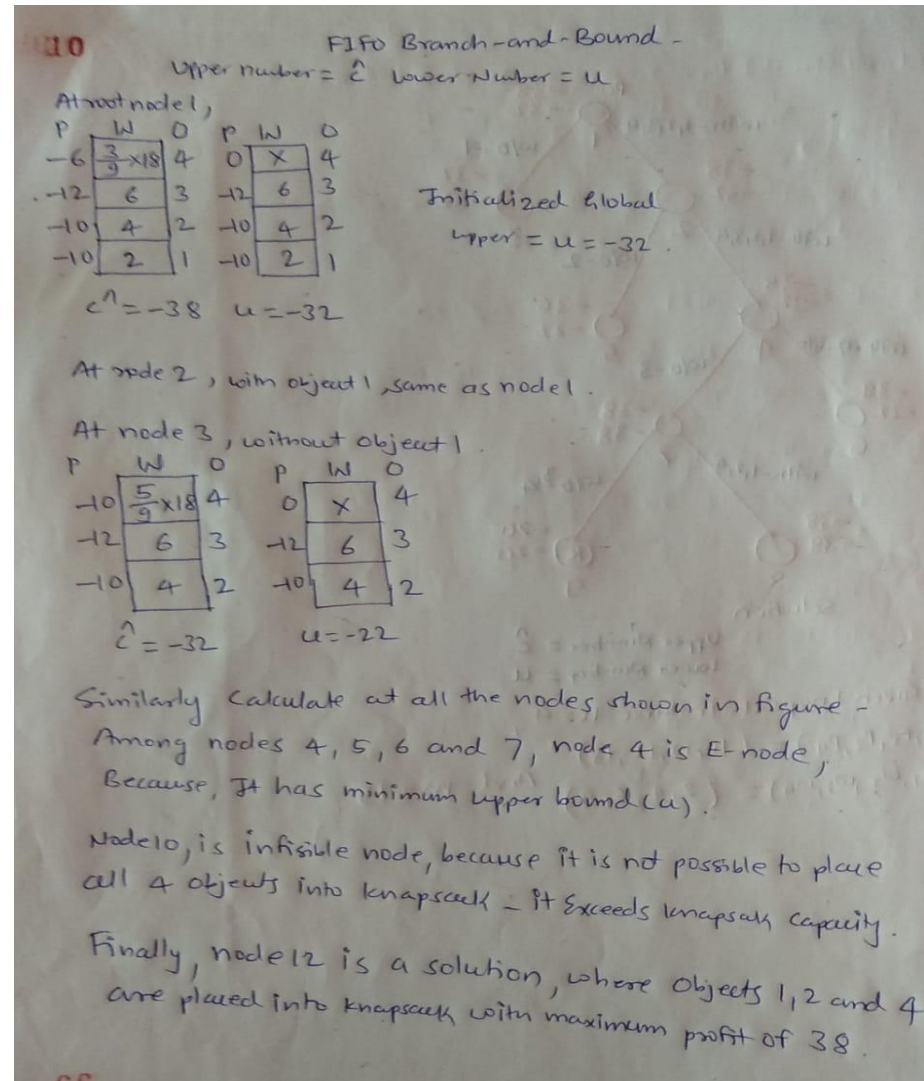 10 FIFO Branch-and-Bound -
Upper number = ĉ Lower Number = u,
At root node 1,
P W O P W O
-6 3/9 x18 4 0 x 4
-12 6 3 -12 6 3
-10 4 2 -10 4 2
-10 2 1 -10 2 1
Initialized Global
upper = u = -32.
c^ = -38 u = -32
At node 2, with object 1, same as node 1.
At node 3, without object 1
P W O P W O
-10 5/9 x18 4 0 x 4
-12 6 3 -12 6 3
-10 4 2 -10 4 2
ĉ = -32 u = -22
Similarly Calculate at all the nodes, shown in figure -
Among nodes 4, 5, 6 and 7, node 4 is E-node,
Because, It has minimum upper bound (u).
Node 10, is infisible node, because it is not possible to place
all 4 objects into knapsack - it Exceeds knapsak capacity.
Finally, node 12 is a solution, where Objects 1, 2 and 4
are placed into knapsack with maximum profit of 38.